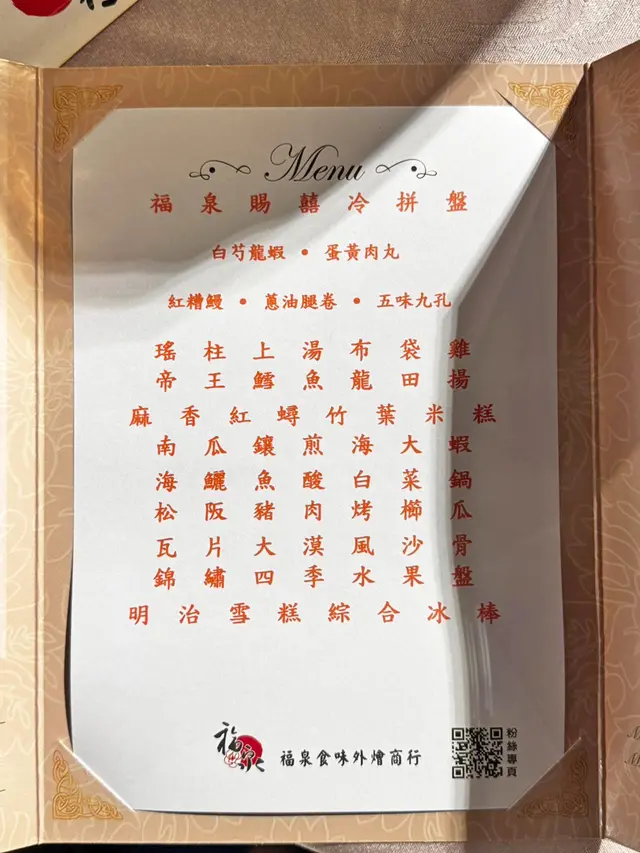 Menu
福泉賜囍冷拼盤
白芍龍蝦 • 蛋黃肉丸
紅糟鰻 • 蔥油腿卷 • 五味九孔
瑤柱上湯布袋雞
帝王鱈魚龍田揚
麻香紅蟳竹葉米糕
南瓜鑲煎海大蝦
海鱺魚酸白菜鍋
松阪豬肉烤櫛瓜
瓦片大漠風沙骨
錦繡四季水果盤
明治雪糕綜合冰棒
福泉
福泉食味外燴商行
粉絲專頁